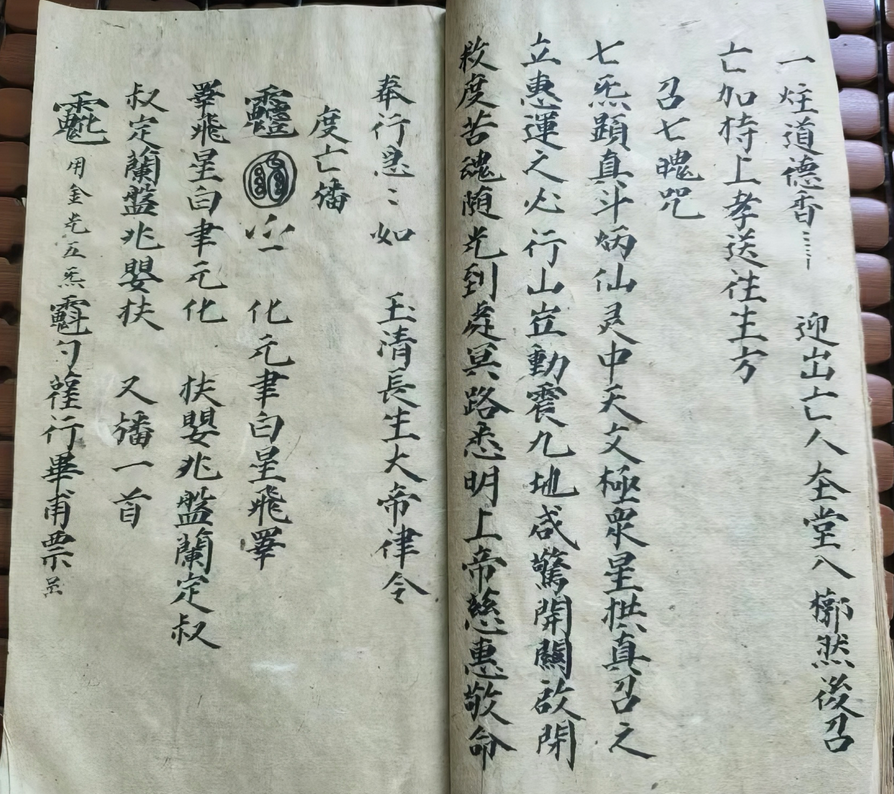 一炷道德香 迎出亡人至堂八 槨然後召
亡加持上孝送往生方
召七魄咒
七炁顕真斗炳仙灵中天文極衆星拱真召之
立惠運之必行山岦動震九地咸驚開關啟閉
救度苦魂随光到處冥路悉明上帝慈惠敬命
奉行急〻如 玉清長生大帝律令
度亡旛
化元聿白星飛睪
睪飛星白聿元化 扶嬰兆盤蘭定叔
叔定蘭盤兆嬰扶 又旛一首
用金光五炁 勺 行畢甫票